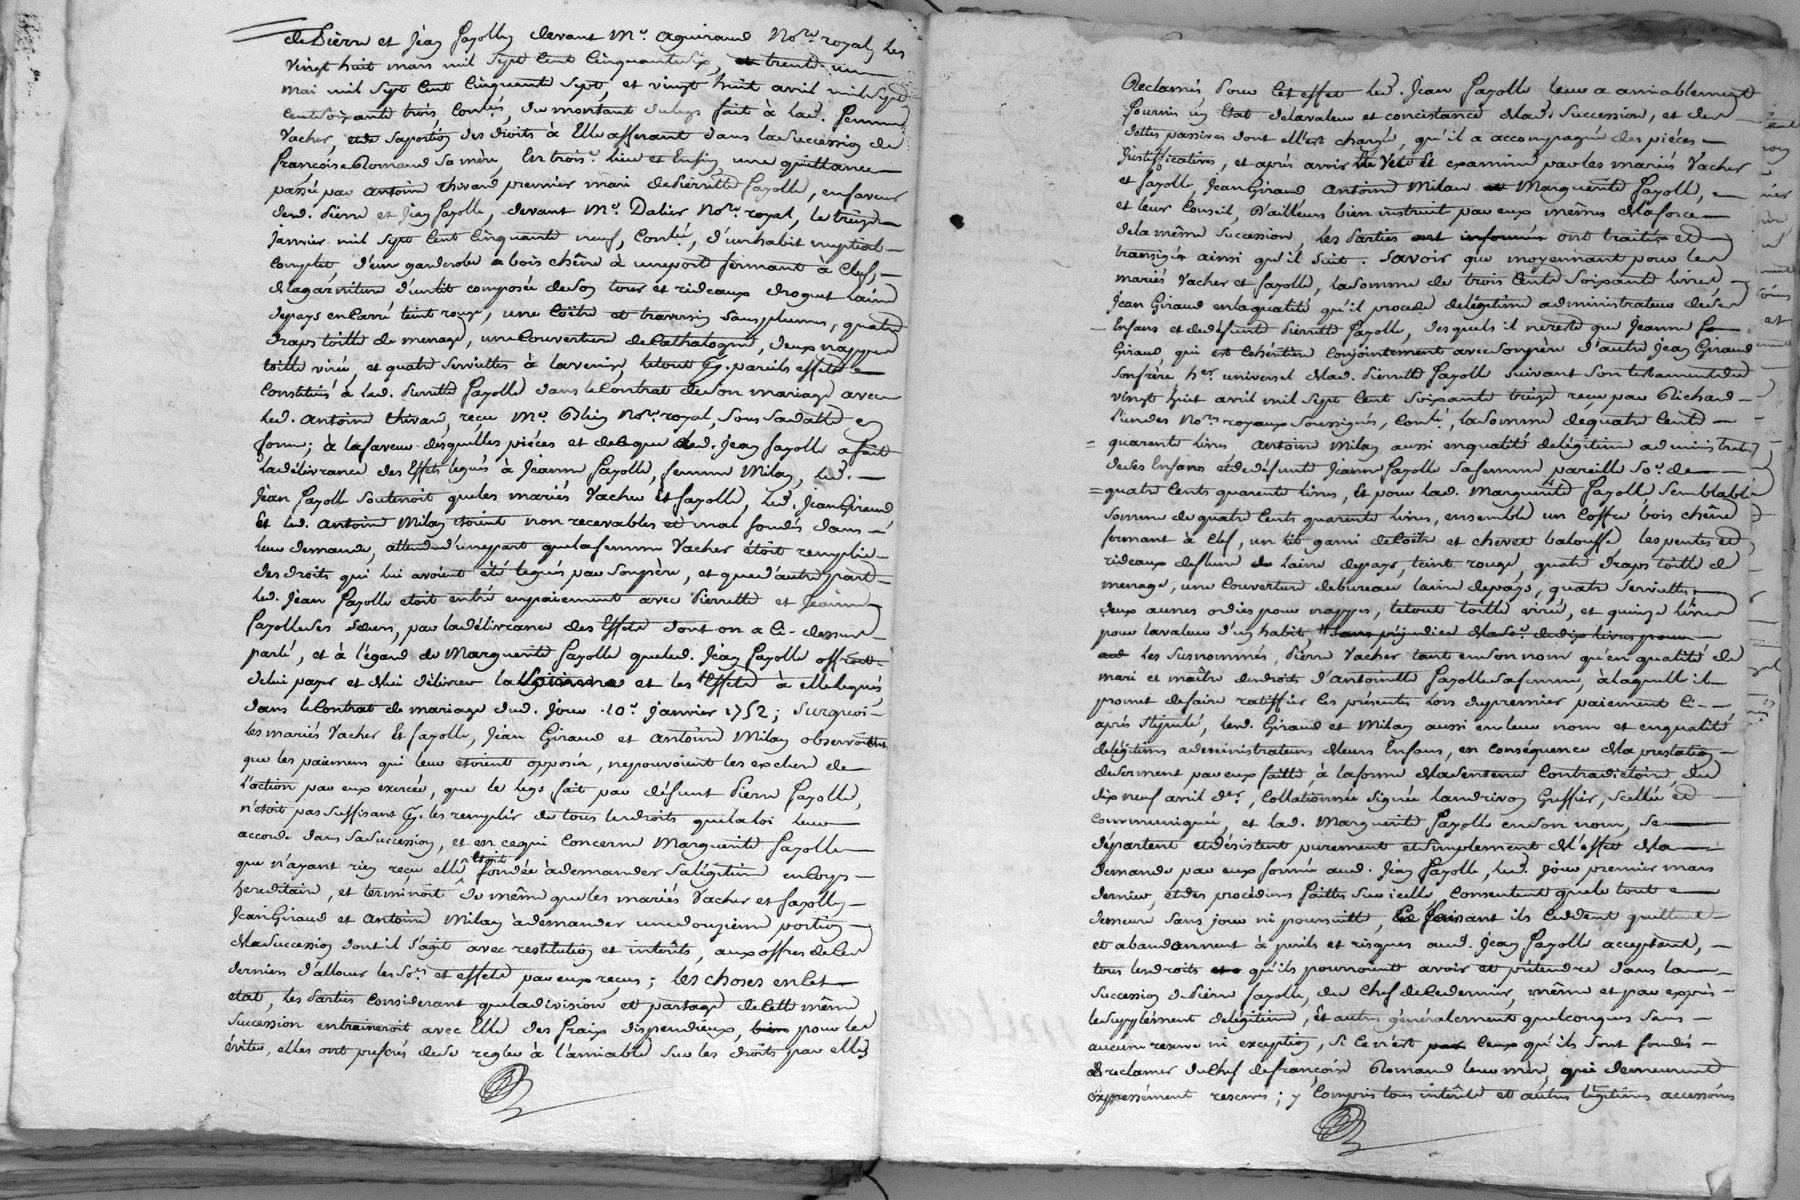 de Pierre et Jean Fayolle, devant Me. Aguiraud Nore. royal, les
vingt huit mars mil sept cent cinquante six, trente un
mai mil sept cent cinquante sept, et vingt huit avril mil sept
cent soixante trois, contés, du montant du legs fait à lad. femme
Vacher, et de sa portion des droits à Elle afferant dans la succession de
françoise Romand sa mère, En troise. lieu et Enfin une quittance
passée par antoine thivaud premier mari de Pierrette Fayolle, en faveur
desd. Pierre et Jean Fayolle, devant Me. Dalier Nore. royal, le treize
Janvier mil sept cent cinquante neuf, contée, d'un habit nuptial
complet, d'une garderobe bois chêne à une porte fermant à Clef,
de la garniture d'un lit composée de son tour et rideaux droguet laine
de pays encarré teint rouge, une Coëtre et traversin sans plumes, quatre
draps toille de menage, une Couverture de Cathalogne, deux nappes
toille virée, et quatre serviettes à la venise, le tout pareils effets
constitués à lad. Pierrette Fayolle dans le Contrat de son mariage avec
led. Antoine thivaud, reçu Me. Blein Nore. royal, sous sa datte en
forme; à la faveur desquelles piéces et de ce que led. Jean Fayolle a fait
la délivrance des Effets légués à Jeanne Fayolle, femme Milan, led.
Jean Fayolle soutenoit que les mariés Vacher et Fayolle, led. Jean Giraud
Et led. Antoine Milan étoient non recevables et mal fondés dans
leur demande, attendu d'une part que la femme Vacher étoit remplie
des droits qui lui avoient été legués par son père, et que d'autre part
led. Jean Fayolle etoit entré en paiement avec Pierrette et Jeanne
Fayolle ses Sœurs, par la délivrance des Effets dont on a ci-dessus
parlé, et à l'égard de Marguerite Fayolle que led. Jean Fayolle offroit
de lui payer et de lui délivrer la somme et les Effets à elle legués
dans le Contrat de mariage dud. jour 10e. janvier 1752; surquoi
les mariés Vacher et Fayolle, Jean Giraud et Antoine Milan observoient
que les paiemens qui leur etoient opposés, ne pouvoient les exclure de
l'action par eux exercée, que le legs fait par défunt Pierre Fayolle,
n'étoit pas suffisant les remplir de tous les droits que la loi leur
accorde dans sa succession, et en ce qui concerne Marguerite Fayolle
que n'ayant rien reçu elle étoit fondée à demander sa légitime en Corps
héreditaire, et terminoit de même que les mariés Vacher et Fayolle,
Jean Giraud et Antoine Milan à demander une douzieme portion
de la succession dont il s'agit avec restitution et intérêts, aux offres de ces
derniers d'allouer les Sos. et effets par eux reçus; les choses en cet
etat, les Parties considerant que la division et partage de cette même
succession entraineroit avec Elle des fraix dispendieux, pour les
éviter, elles ont préférés de se regler à l'amiable sur les droits par elles
Réclamés Pour Cet effet led. Jean Fayolle leur a amiablement
fourni un Etat de la valeur et concistance de lad. Succession, et des
dettes passives dont elle est chargée, qu'il a accompagné des piéces
Justifficatives, et après avoir Vu et examiné par les mariés Vacher
et Fayolle, Jean Giraud Antoine Milan Marguerite Fayolle,
et leur Conseil, d'ailleurs bien instruits par eux mêmes de la force
de la même succession, les Parties ont traité et
transigé ainsi qu'il suit: savoir que moyennant pour les
mariés Vacher et Fayolle, la somme de trois Cents soixante livres,
Jean Giraud en la qualité qu'il procede de légitime administrateur de ses
Enfans et de défunte Pierrette Fayolle, desquels il ne reste que Jeanne
Giraud, qui est Cohéritière Conjointement avec son père d'autre Jean Giraud
son frère her. universel de lad. Pierrette Fayolle suivant son testament du
vingt huit avril mil sept Cent soixante treize reçu par Richard
l'un des Nores. royaux soussignés, Conté, la somme de quatre Cents
quarente livres Antoine Milan aussi en qualité de légitime administrateur
de ses Enfans et de défunte Jeanne Fayolle sa femme pareille So. de
quatre Cents quarente livres, Et pour lad. Marguerite Fayolle semblable
somme de quatre Cents quarente livres, ensemble un Coffre bois chêne
fermant à Clef, un lit garni de Coëtre et chevet balouffe les pentes et
rideaux de laine de pays teint rouge, quatre draps toille de
menage, une Couverture de bureau laine de pays, quatre serviettes,
deux aunes ordies pour nappes, le tout toille virée, et quinze livres
pour la valeur d'un habit,
les susnommés, Pierre Vacher tant en son nom qu'en qualité de
mari et maître des droits d'Antoinette Fayolle sa femme, à laquelle il
promet de faire ratiffier les présentes lors du premier paiement Ci-
après stipulé, lesd. Giraud et Milan aussi en leur nom et en qualité
de légitimes administrateurs de leurs Enfans, en conséquence de la prestation
de serment par eux faitte, à la forme de la sentence Contradictoire du
dix neuf avril der., Collationnée signée Landrivon Greffier, scellée et
communiquée, et lad. Marguerite Fayolle en son nom, se
départent et désistent purement et simplement de l'effet de la
demande par eux formée aud. Jean Fayolle, led. jour premier mars
dernier, et des procédures faittes sur icelle, Consentent que le tout
demeure sans jour ni poursuitte, Ce faisant ils Cédent quittent
et abandonnent à perils et risques aud. Jean Fayolle acceptant,
tous les droits qu'ils pourroient avoir et prétendre dans la
succession de Pierre Fayolle, du Chef de Ce dernier, même et par exprès
le supplément de légitime, et autres généralement quelconques sans
aucune reserve ni exception, si ce n'est Ceux qu'ils sont fondés
à reclamer du Chef de françoise Romand leur mère, qui demeurent
expressément reservés; y Compris tous intérêts et autres légitimes accessoires